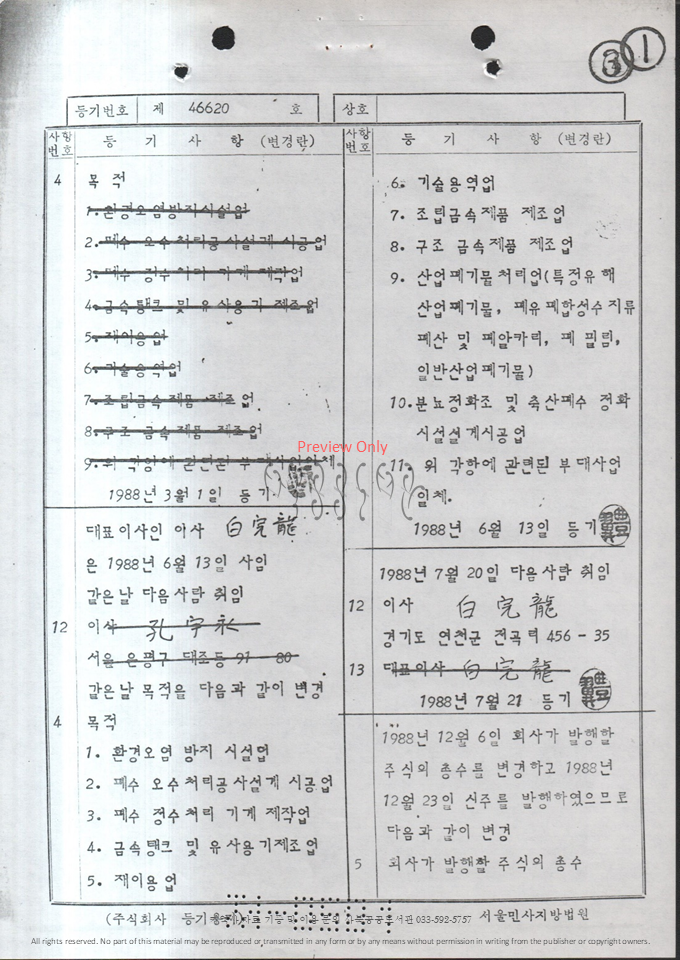 ③ ①
등기번호 제 46620 호 상호
사항번호 등 기 사 항 (변경란)
4 목 적
1. 환경오염방지시설업
2. 폐수 오수처리공사설계 시공업
3. 폐수 정수처리 기계 제작업
4. 금속탱크 및 유사용기 제조업
5. 재이용업
6. 기술용역업
7. 조립금속제품 제조업
8. 구조 금속제품 제조업
9. 위 각항에 관련된 부대사업일체
1988년 3월 1일 등기
대표이사인 이사 白完龍
은 1988년 6월 13일 사임
같은날 다음사람 취임
12 이사 孔宇永
서울 은평구 대조동 91 - 80
같은날 목적을 다음과 같이 변경
4 목적
1. 환경오염 방지 시설업
2. 폐수 오수처리공사설계 시공업
3. 폐수 정수처리 기계 제작업
4. 금속탱크 및 유사용기제조업
5. 재이용업
사항번호 등 기 사 항 (변경란)
6. 기술용역업
7. 조립금속제품 제조업
8. 구조 금속제품 제조업
9. 산업폐기물처리업(특정유해
산업폐기물, 폐유폐합성수지류
폐산 및 폐알카리, 폐 필림,
일반산업폐기물)
10. 분뇨정화조 및 축산폐수 정화
시설설계시공업
11. 위 각항에 관련된 부대사업
일체.
1988년 6월 13일 등기
1988년 7월 20일 다음사람 취임
12 이사 白完龍
경기도 연천군 전곡리 456 - 35
13 대표이사 白完龍
1988년 7월 21 등기
1988년 12월 6일 회사가 발행할
주식의 총수를 변경하고 1988년
12월 23일 신주를 발행하였으므로
다음과 같이 변경
5 회사가 발행할 주식의 총수
Preview Only
(주식회사 등기 033-592-5757 서울민사지방법원
All rights reserved. No part of this material may be reproduced or transmitted in any form or by any means without permission in writing from the publisher or copyright owners.